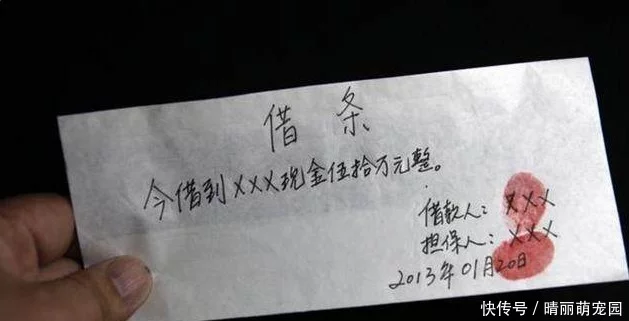 借条
今借到XXX现金伍拾万元整。
借款人：XXX
担保人：XXX
2013年01月20日
快传号／晴丽萌宠园